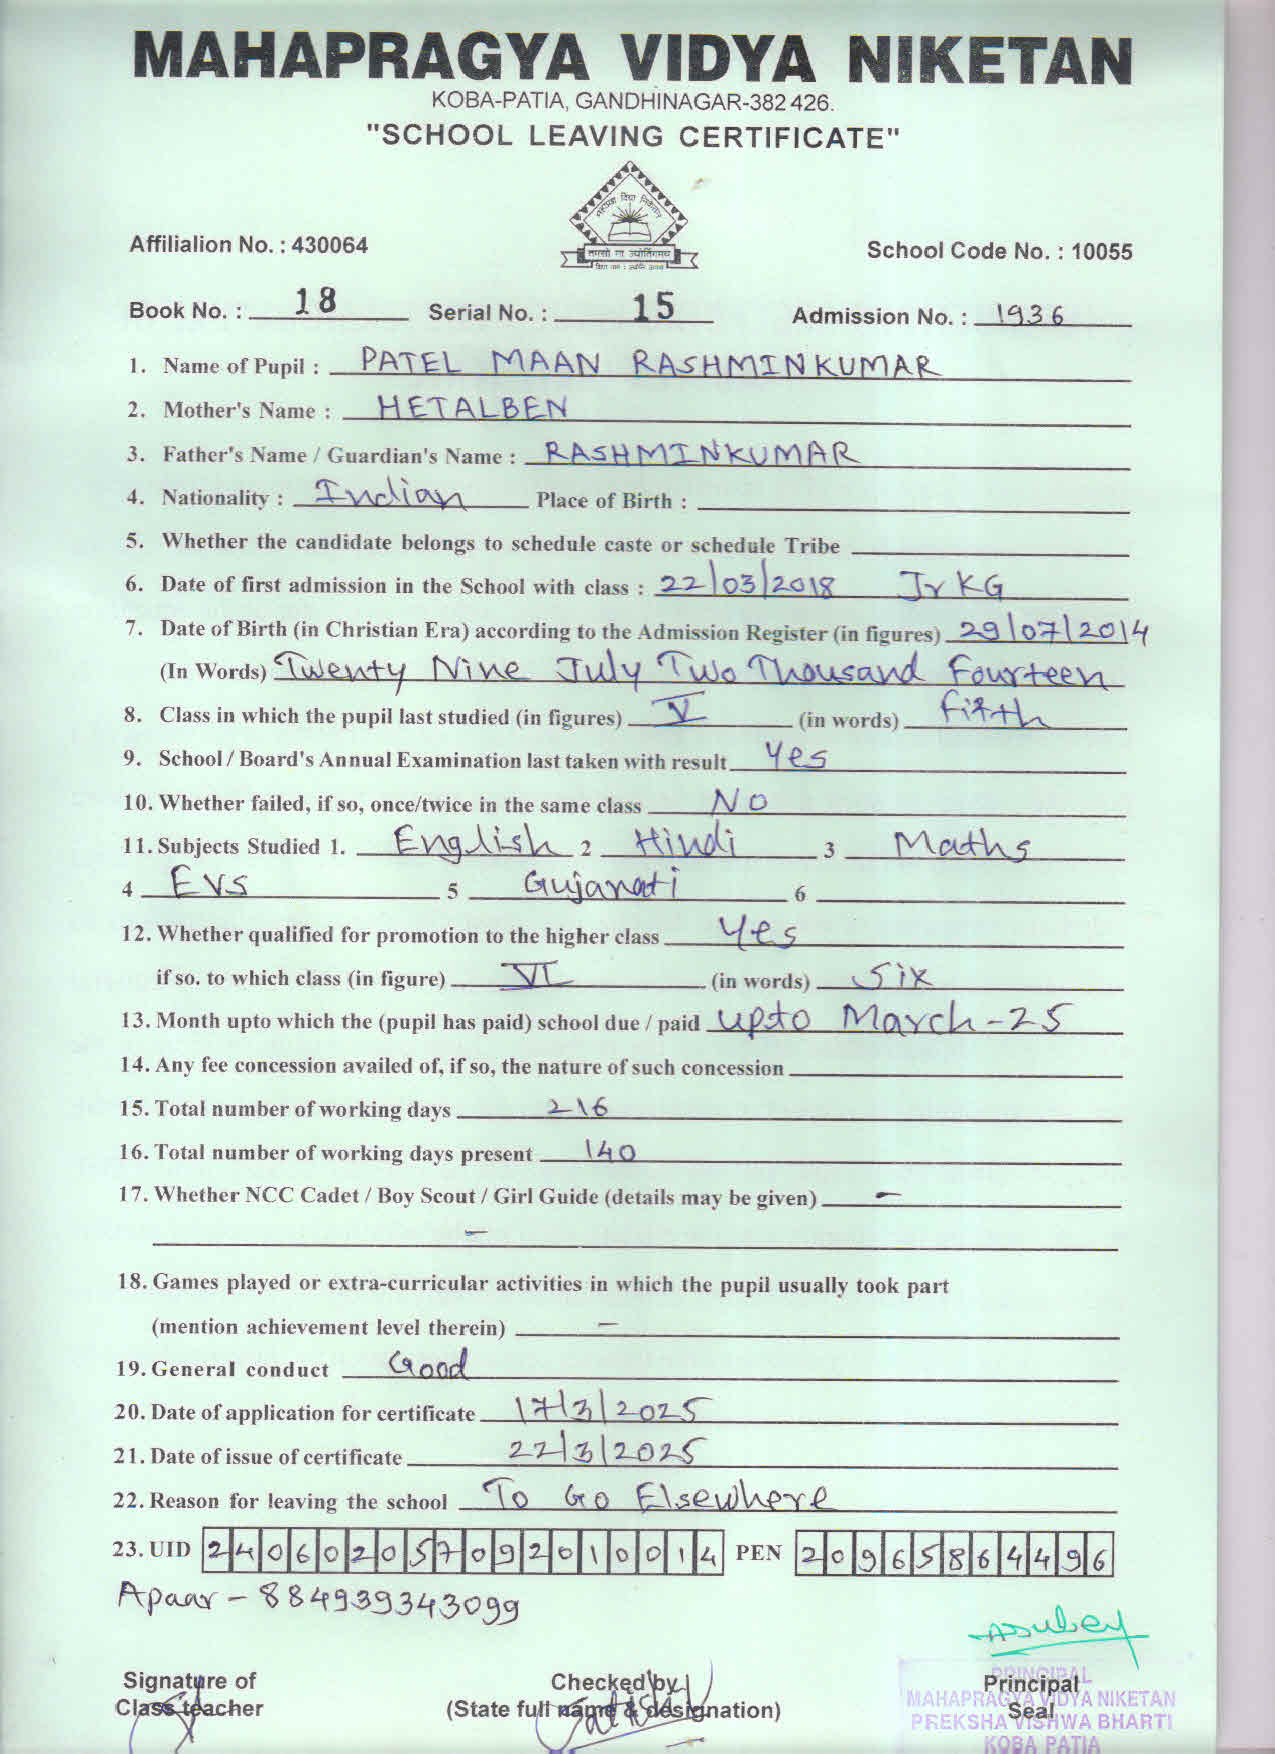 MAHAPRAGYA VIDYA NIKETAN
KOBA-PATIA, GANDHINAGAR-382 426.
"SCHOOL LEAVING CERTIFICATE"
महाप्रज्ञ विद्या निकेतन
तमसो मा ज्योतिर्गमय
Affilialion No. : 430064
School Code No. : 10055
Book No. : 18 Serial No. : 15 Admission No. : 1936
1. Name of Pupil : PATEL MAAN RASHMINKUMAR
2. Mother's Name : HETALBEN
3. Father's Name / Guardian's Name : RASHMINKUMAR
4. Nationality : Indian Place of Birth :
5. Whether the candidate belongs to schedule caste or schedule Tribe
6. Date of first admission in the School with class : 22/03/2018 Jr KG
7. Date of Birth (in Christian Era) according to the Admission Register (in figures) 29/07/2014
(In Words) Twenty Nine July Two Thousand Fourteen
8. Class in which the pupil last studied (in figures) V (in words) fifth
9. School / Board's Annual Examination last taken with result Yes
10. Whether failed, if so, once/twice in the same class NO
11. Subjects Studied 1. English 2 Hindi 3 Maths
4 EVS 5 Gujarati 6
12. Whether qualified for promotion to the higher class Yes
if so. to which class (in figure) VI (in words) Six
13. Month upto which the (pupil has paid) school due / paid upto March-25
14. Any fee concession availed of, if so, the nature of such concession
15. Total number of working days 216
16. Total number of working days present 140
17. Whether NCC Cadet / Boy Scout / Girl Guide (details may be given) -
-
18. Games played or extra-curricular activities in which the pupil usually took part
(mention achievement level therein) -
19. General conduct Good
20. Date of application for certificate 17/3/2025
21. Date of issue of certificate 22/3/2025
22. Reason for leaving the school To Go Elsewhere
23. UID 240602057092010014 PEN 20965864496
Apaar - 884939343099
Signature of
Class teacher
Checked by
(State full name & designation)
Principal
Seal
PRINCIPAL
MAHAPRAGYA VIDYA NIKETAN
PREKSHA VISHWA BHARTI
KOBA PATIA